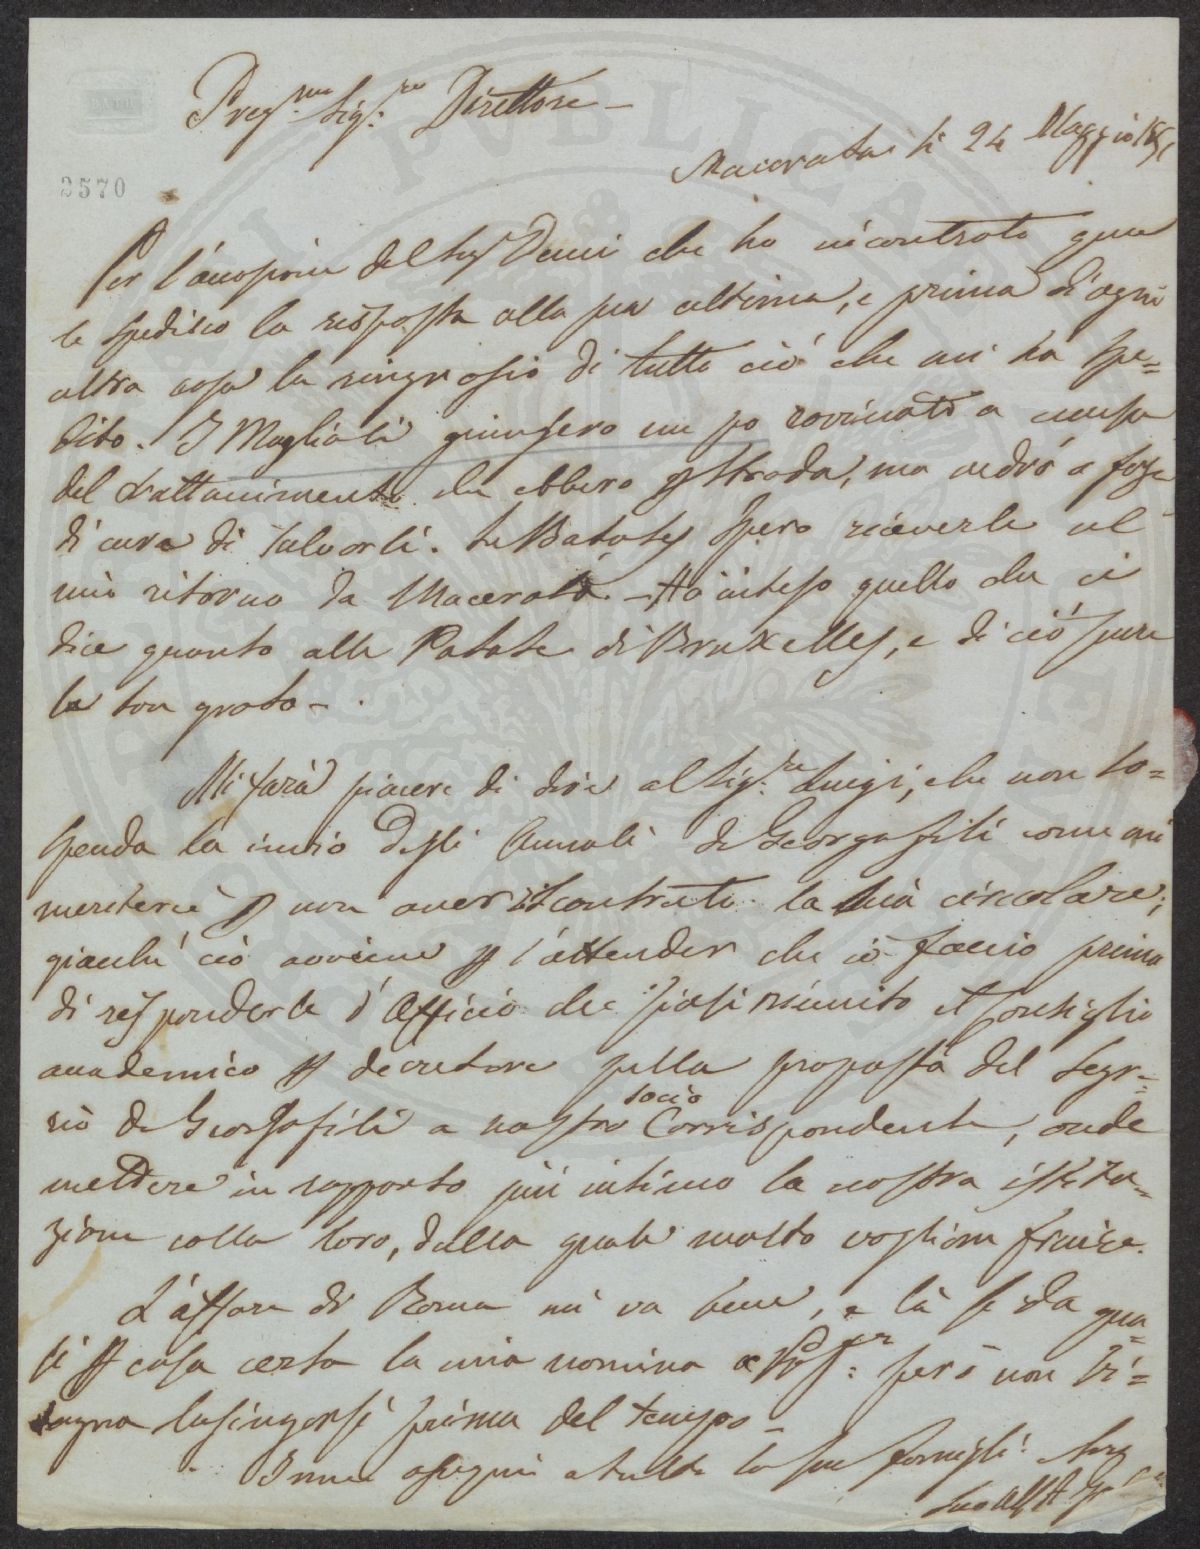 BATH
Preg.mo Sig.re Direttore —
Macerata li 24 Maggio
2570
Per l'occasione del Sig Demi che ho incontrato qua
le spedisco la risposta alla sua ultima, e prima di ogni
altra cosa la ringrazio di tutto ciò che mi ha spe=
dito. I Magliali giunsero un po rovinati a causa
del trattenimento che ebbero p strada, ma vedrò a forza
di cura di salvarli. Le Batates spero riceverle al
mio ritorno da Macerata — Ho inteso quello che ci
dice quanto alle Patate di Bruxelles, e di ciò pure
le son grato —
Mi farà piacere di dire al Sig.re Luigi, che non so=
spenda la invio degli Annali de Georgofili come mi
meriterei p non aver riscontrato la sua circolare;
giacchè ciò avviene p l'attender che io faccio prima
di risponderle d'Officio che siasi riunito il Consiglio
accademico p decretare sulla proposta del Segr=
rio de Georgofili a nostro socio Corrispondente, onde
mettere in rapporto più intimo la nostra istitu=
zione colla loro, dalla quale molto vogliam fruire.
L'affare di Roma mi va bene, e là si da qua=
si p cosa certa la mia nomina a Prof.re però non bi=
sogna lusingarsi prima del tempo —
I miei ossequi a tutta la sua famigli